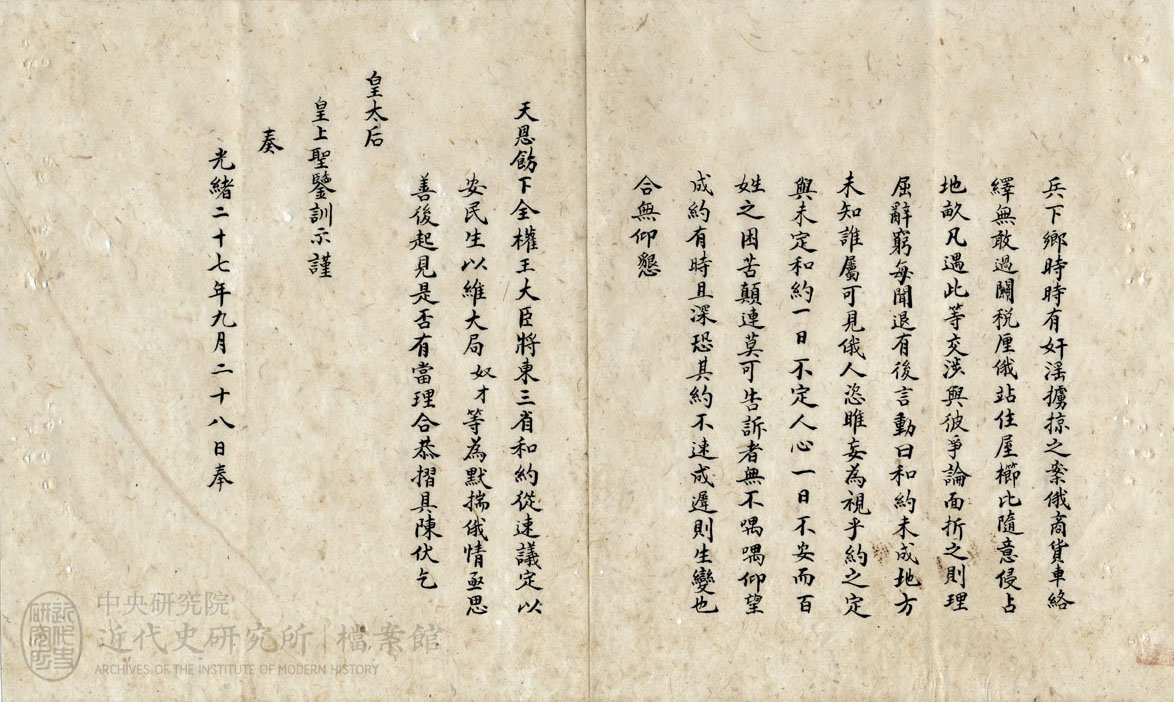 兵下鄉時時有奸淫擄掠之案俄商貨車絡
繹無敢過關稅厘俄站住屋櫛比隨意侵占
地畝凡遇此等交涉與彼爭論面折之則理
屈辭窮每聞退有後言動曰和約未成地方
未知誰屬可見俄人恣睢妄為視乎約之定
與未定和約一日不定人心一日不安而百
姓之困苦顛連莫可告訴者無不喁喁仰望
成約有時且深恐其約不速成遲則生變也
合無仰懇
天恩飭下全權王大臣將東三省和約從速議定以
安民生以維大局奴才等為默揣俄情亟思
善後起見是否有當理合恭摺具陳伏乞
皇太后
皇上聖鑒訓示謹
奏
光緒二十七年九月二十八日奉
中央研究院
近代史研究所 檔案館
ARCHIVES OF THE INSTITUTE OF MODERN HISTORY